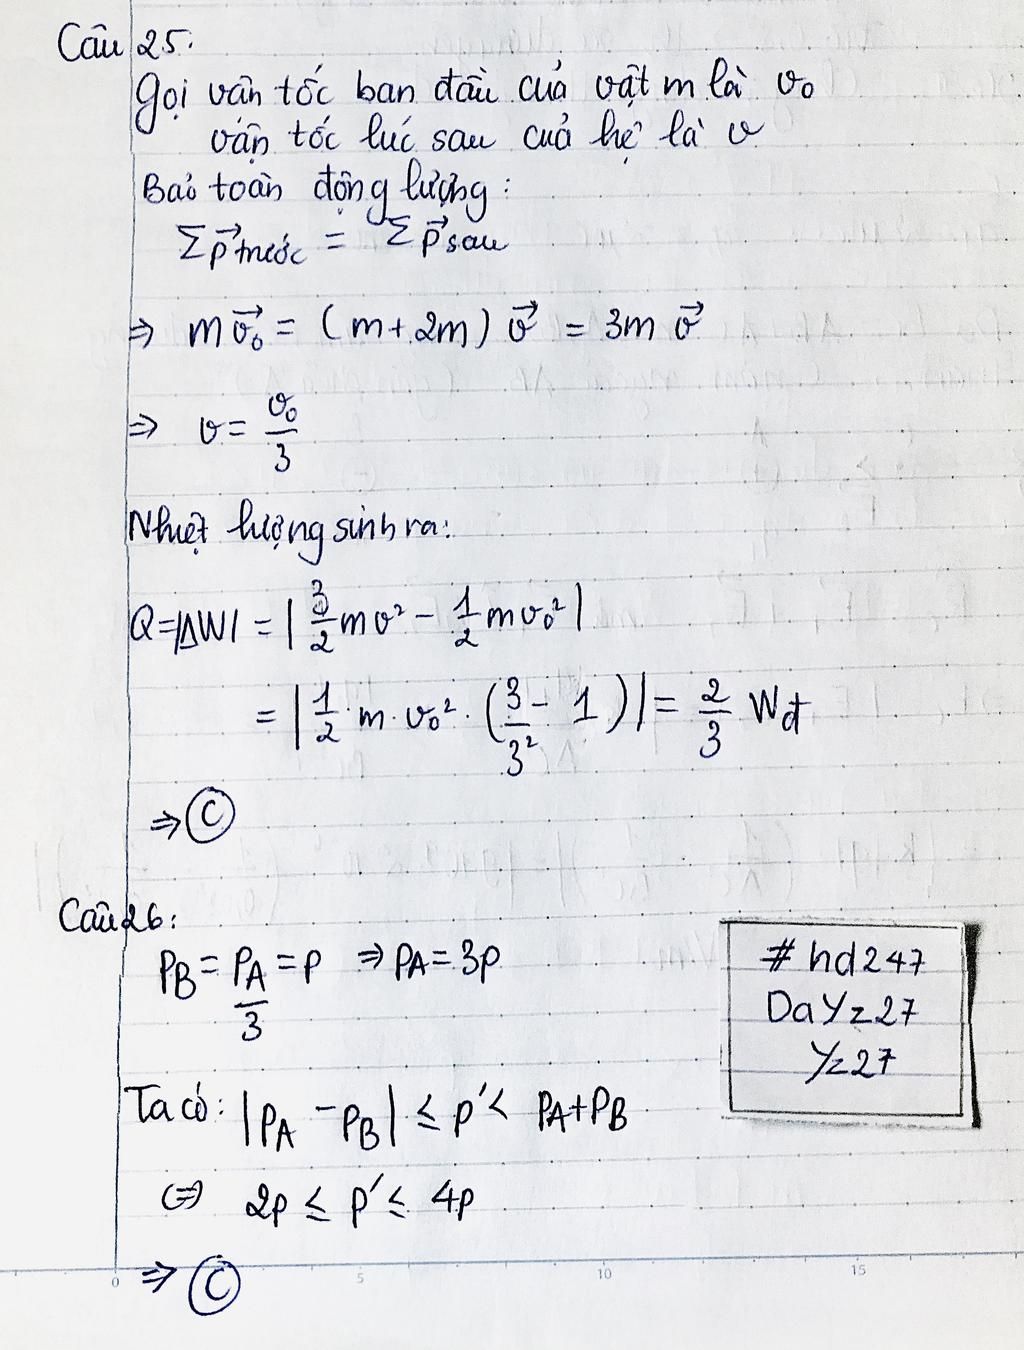 Câu 25:
Gọi vận tốc ban đầu của vật m là v₀
vận tốc lúc sau của hệ là v
Bảo toàn động lượng:
Σp⃗trước = Σp⃗sau
⇒ mv⃗₀ = (m+2m) v⃗ = 3m v⃗
⇒ v = v₀/3
Nhiệt lượng sinh ra:
Q=|ΔW| = |3/2 mv² - 1/2 mv₀²|
= |1/2 · m · v₀² · (3/3² - 1)| = 2/3 Wđ
⇒ C
Câu 26:
PB = PA/3 = P ⇒ PA = 3P
Ta có: |PA - PB| ≤ P' < PA+PB
⇔ 2P ≤ P' ≤ 4P
⇒ C
#hd247
DaYz27
Yz27
0 5 10 15